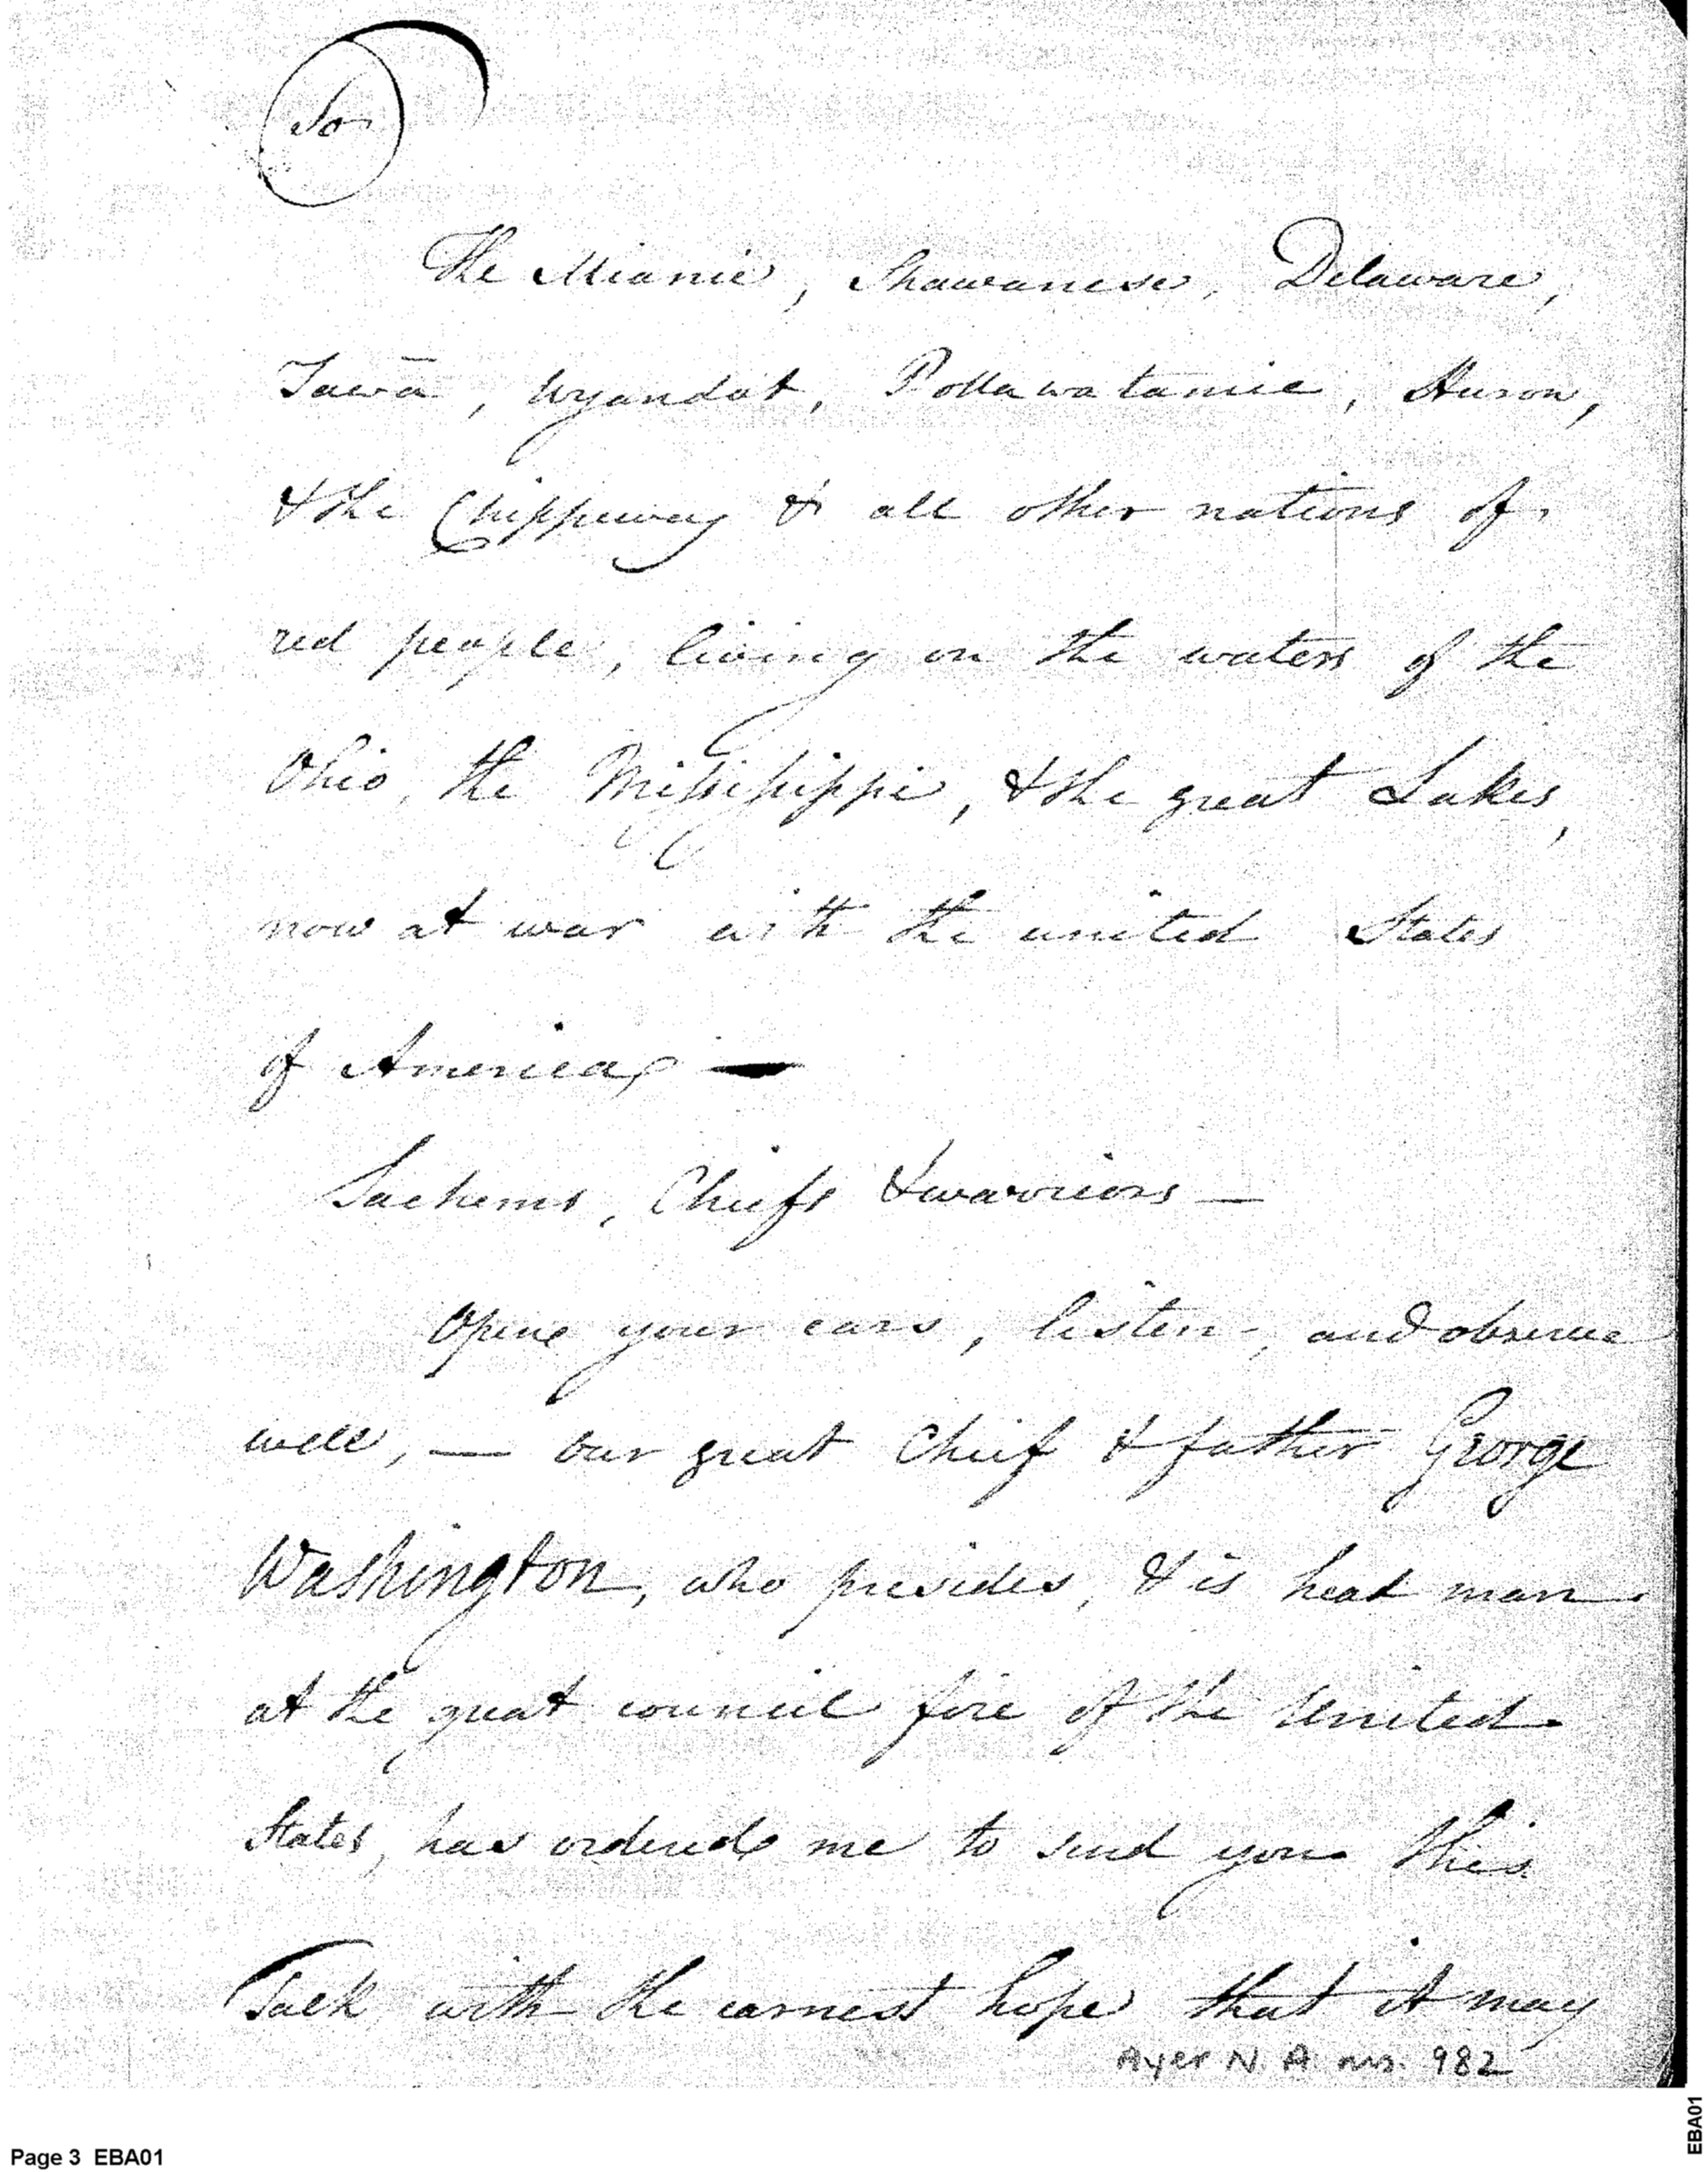 To
The Miamie, Shawanese, Delaware,
Tawa, Wyandot, Pottawatamie, Huron,
& the Chippeway & all other nations of
red people, living on the waters of the
Ohio, the Missisippi, & the great Lakes,
now at war with the united States
of America,—
Sachems, Chiefs & warriors—
Open your ears, listen, and observe
well,— our great Chief & father George
Washington, who presides, & is head man
at the great council fire of the United
States, has ordered me to send you this
Talk with the earnest hope that it may
Ayer N. A. ms. 982
Page 3 EBA01
EBA01